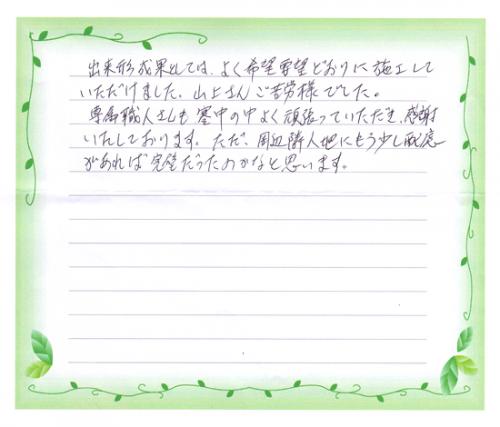 出来形成果としては、よく希望要望どおりに施工して
いただけました。山上さんご苦労様でした。
専属職人さんも寒中の中よく頑張っていただき、感謝
いたしております。ただ、周辺隣人他にもう少し配慮
があれば完璧だったのかなと思います。